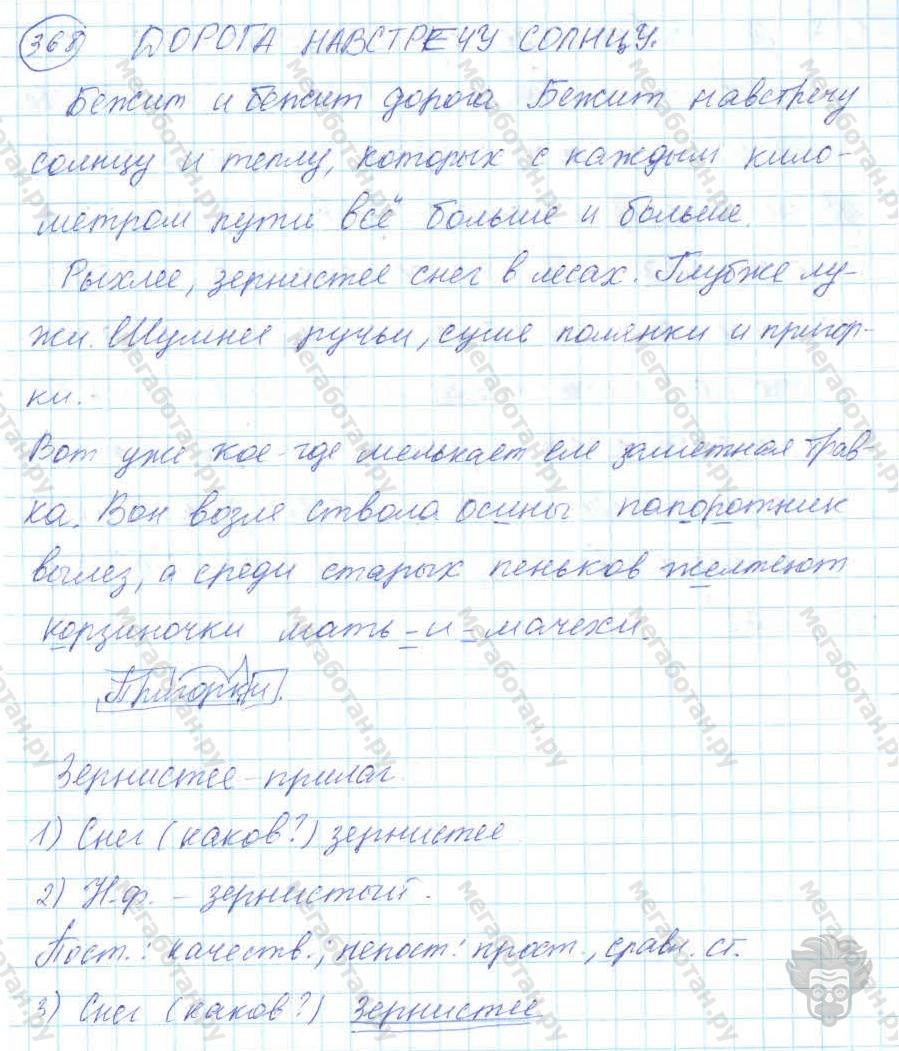 368) ДОРОГА НАВСТРЕЧУ СОЛНЦУ.
Бежит и бежит дорога Бежит навстречу
солнцу и теплу, которых с каждым кило-
метром пути всё больше и больше.
Рыхлее, зернистее снег в лесах. Глубже лу-
жи. Шумнее ручьи, суше полянки и пригор-
ки.
Вот уже кое-где мелькает еле заметная трав-
ка. Вон возле ствола осины папоротник
вылез, а среди старых пеньков желтеют
корзиночки мать-и-мачехи.
Пригорки.
Зернистее - прилаг.
1) Снег (каков?) зернистее
2) Н.ф. - зернистый.
Пост.: качеств.; непост: прост., сравн. ст.
3) Снег (каков?) Зернистее
мегаботан.ру